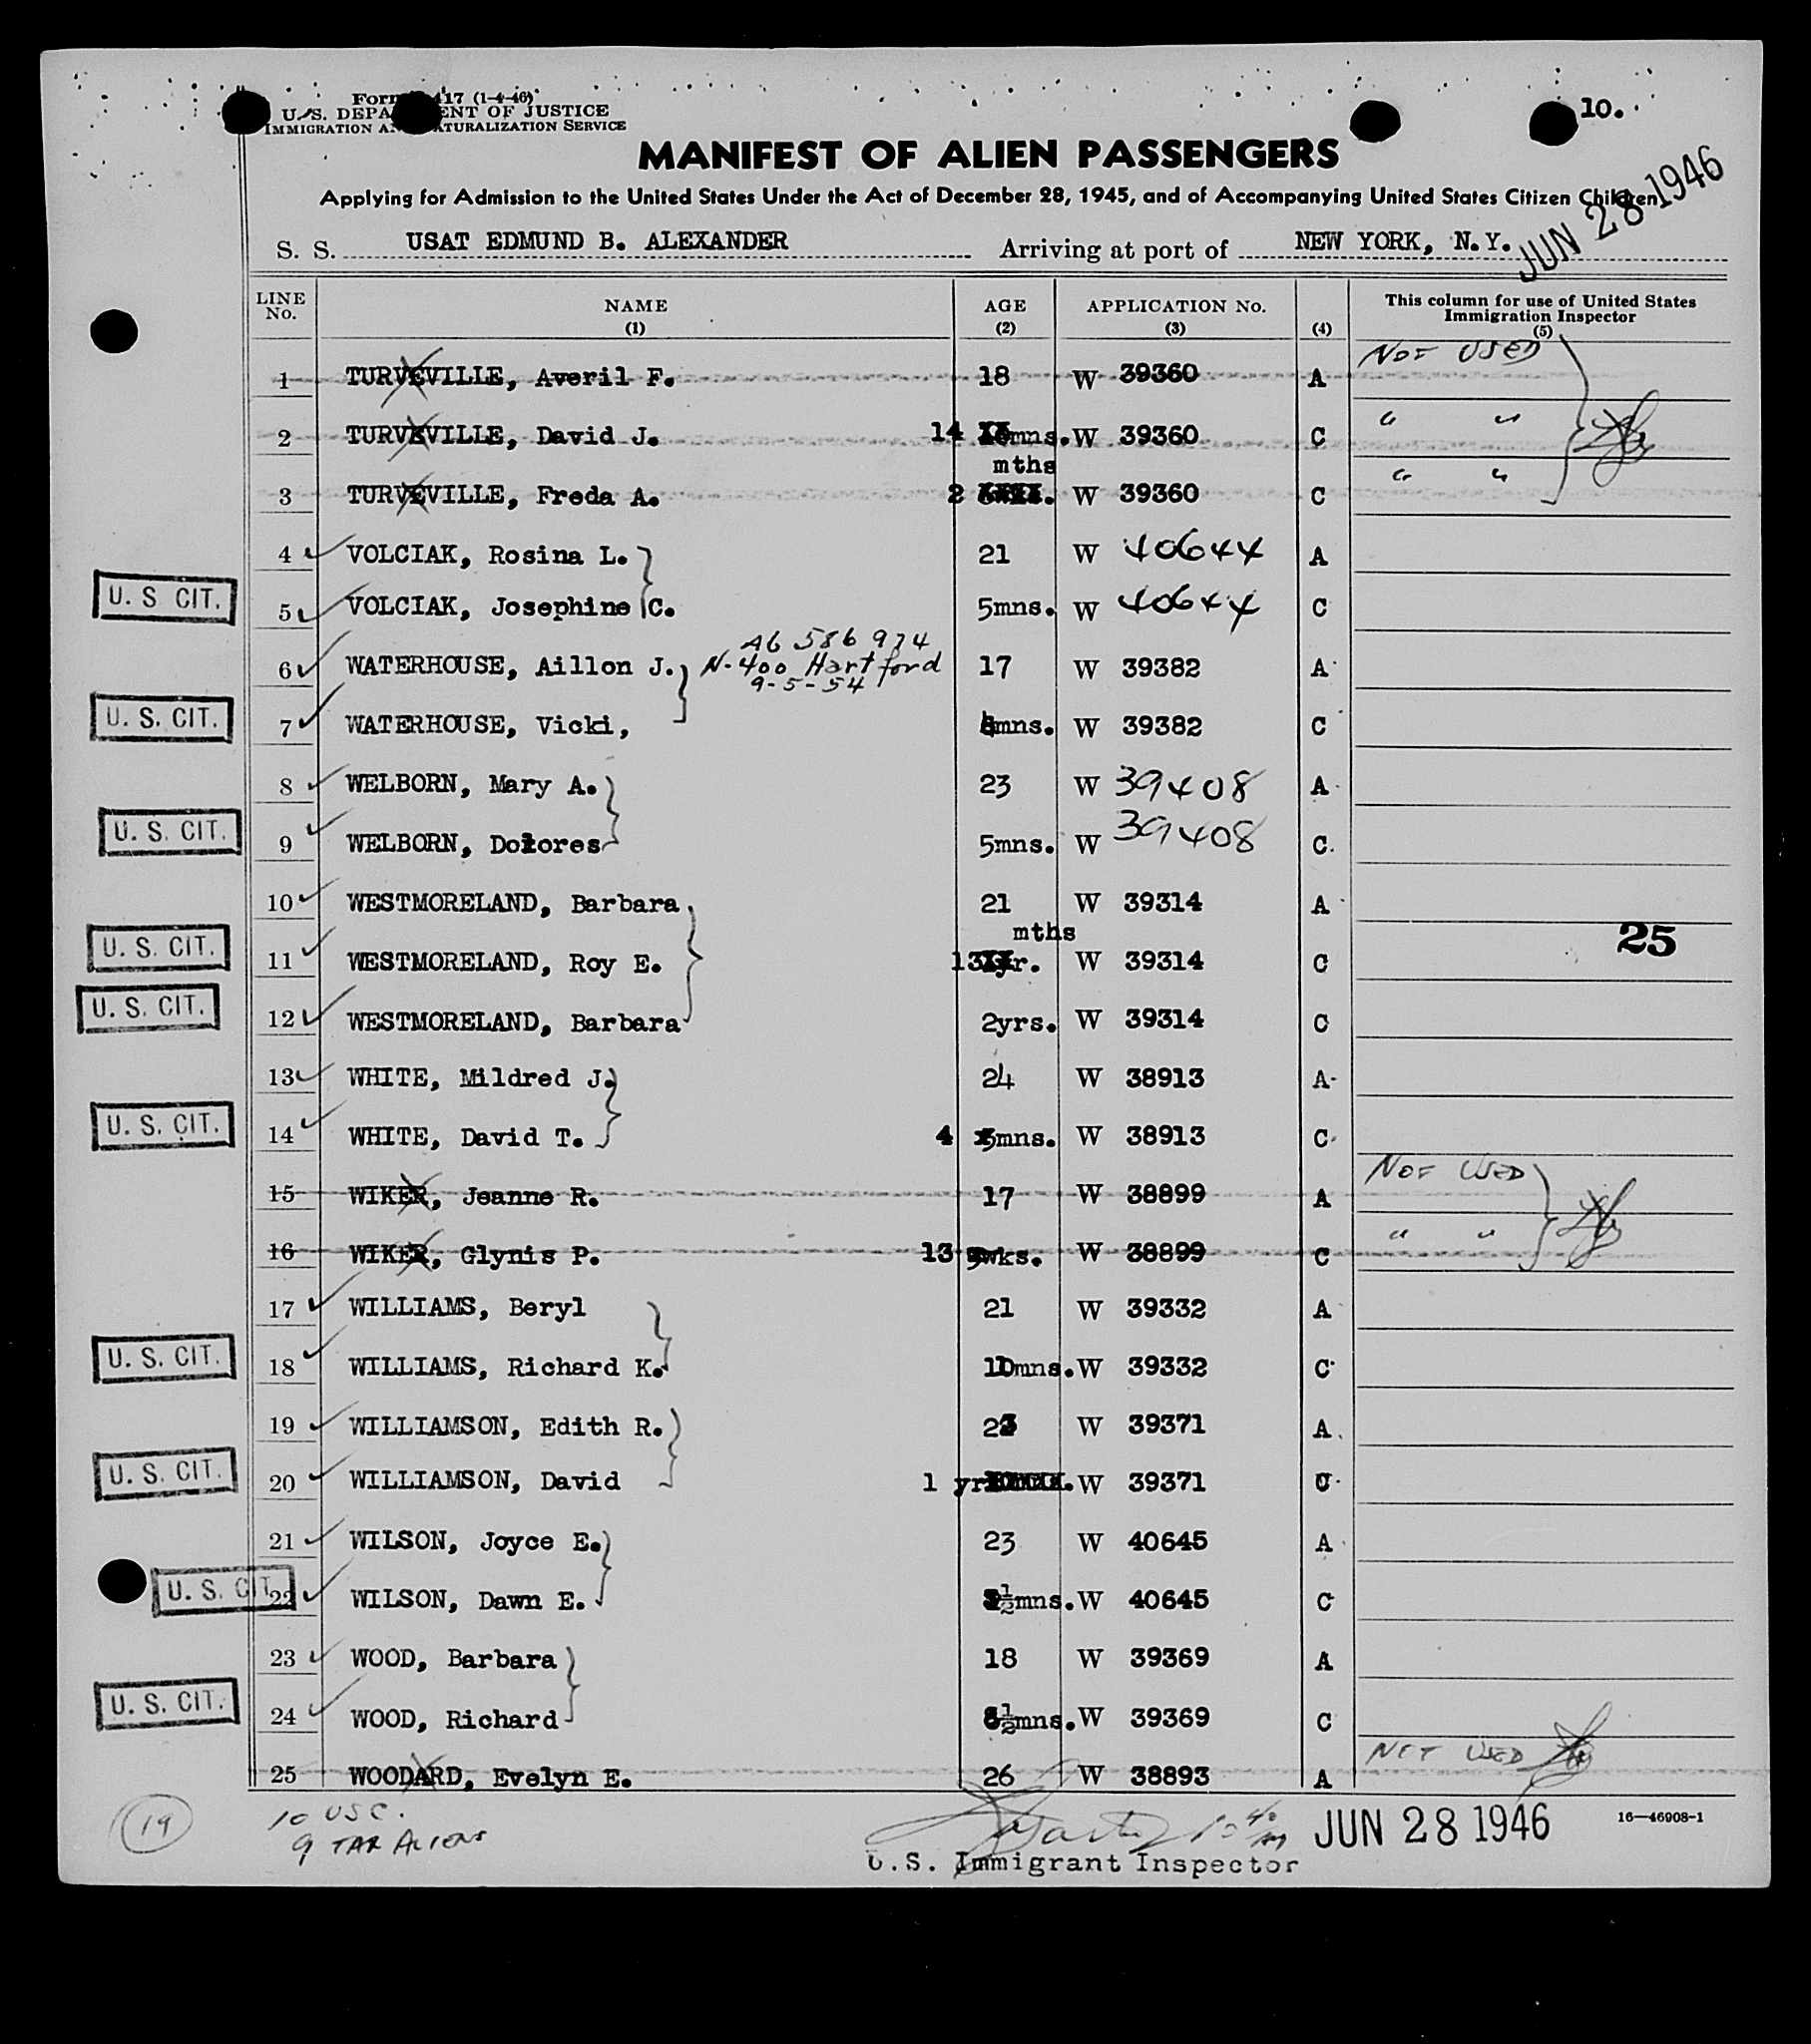 10.
U. S. DEPA ENT OF JUSTICE
IMMIGRATION AN ATURALIZATION SERVICE
MANIFEST OF ALIEN PASSENGERS
Applying for Admission to the United States Under the Act of December 28, 1945, and of Accompanying United States Citizen Children
JUN 28 1946
S. S. USAT EDMUND B. ALEXANDER Arriving at port of NEW YORK, N.Y.
LINE No. NAME (1) AGE (2) APPLICATION No. (3) (4) This column for use of United States Immigration Inspector (5)
1 TURVEVILLE, Averil F. 18 W 39360 A NOT USED
2 TURVEVILLE, David J. 14 mns. W 39360 C " "
mths
3 TURVEVILLE, Freda A. 2 W 39360 C " "
4 VOLCIAK, Rosina L. 21 W 40644 A
U. S CIT. 5 VOLCIAK, Josephine C. 5mns. W 40644 C
A6 586 974
6 WATERHOUSE, Aillon J. N-400 Hartford 17 W 39382 A
9-5-54
U. S. CIT. 7 WATERHOUSE, Vicki, mns. W 39382 C
8 WELBORN, Mary A. 23 W 39408 A
U. S. CIT. 9 WELBORN, Dolores 5mns. W 39408 C
10 WESTMORELAND, Barbara 21 W 39314 A
mths 25
U. S. CIT. 11 WESTMORELAND, Roy E. 13 yr. W 39314 C
U. S. CIT. 12 WESTMORELAND, Barbara 2yrs. W 39314 C
13 WHITE, Mildred J. 24 W 38913 A
U. S. CIT. 14 WHITE, David T. 4 mns. W 38913 C
15 WIKER, Jeanne R. 17 W 38899 A NOT USED
16 WIKER, Glynis P. 13 wks. W 38899 C " "
17 WILLIAMS, Beryl 21 W 39332 A
U. S. CIT. 18 WILLIAMS, Richard K. mns. W 39332 C
19 WILLIAMSON, Edith R. 23 W 39371 A
U. S. CIT. 20 WILLIAMSON, David 1 yr W 39371 C
21 WILSON, Joyce E. 23 W 40645 A
U. S. CIT. 22 WILSON, Dawn E. W 40645 C
23 WOOD, Barbara 18 W 39369 A
U. S. CIT. 24 WOOD, Richard 8½mns. W 39369 C
25 WOODARD, Evelyn E. 26 W 38893 A NOT USED
19 10 USC. JUN 28 1946 16—46908-1
9 TAR ALIENS
U.S. Immigrant Inspector